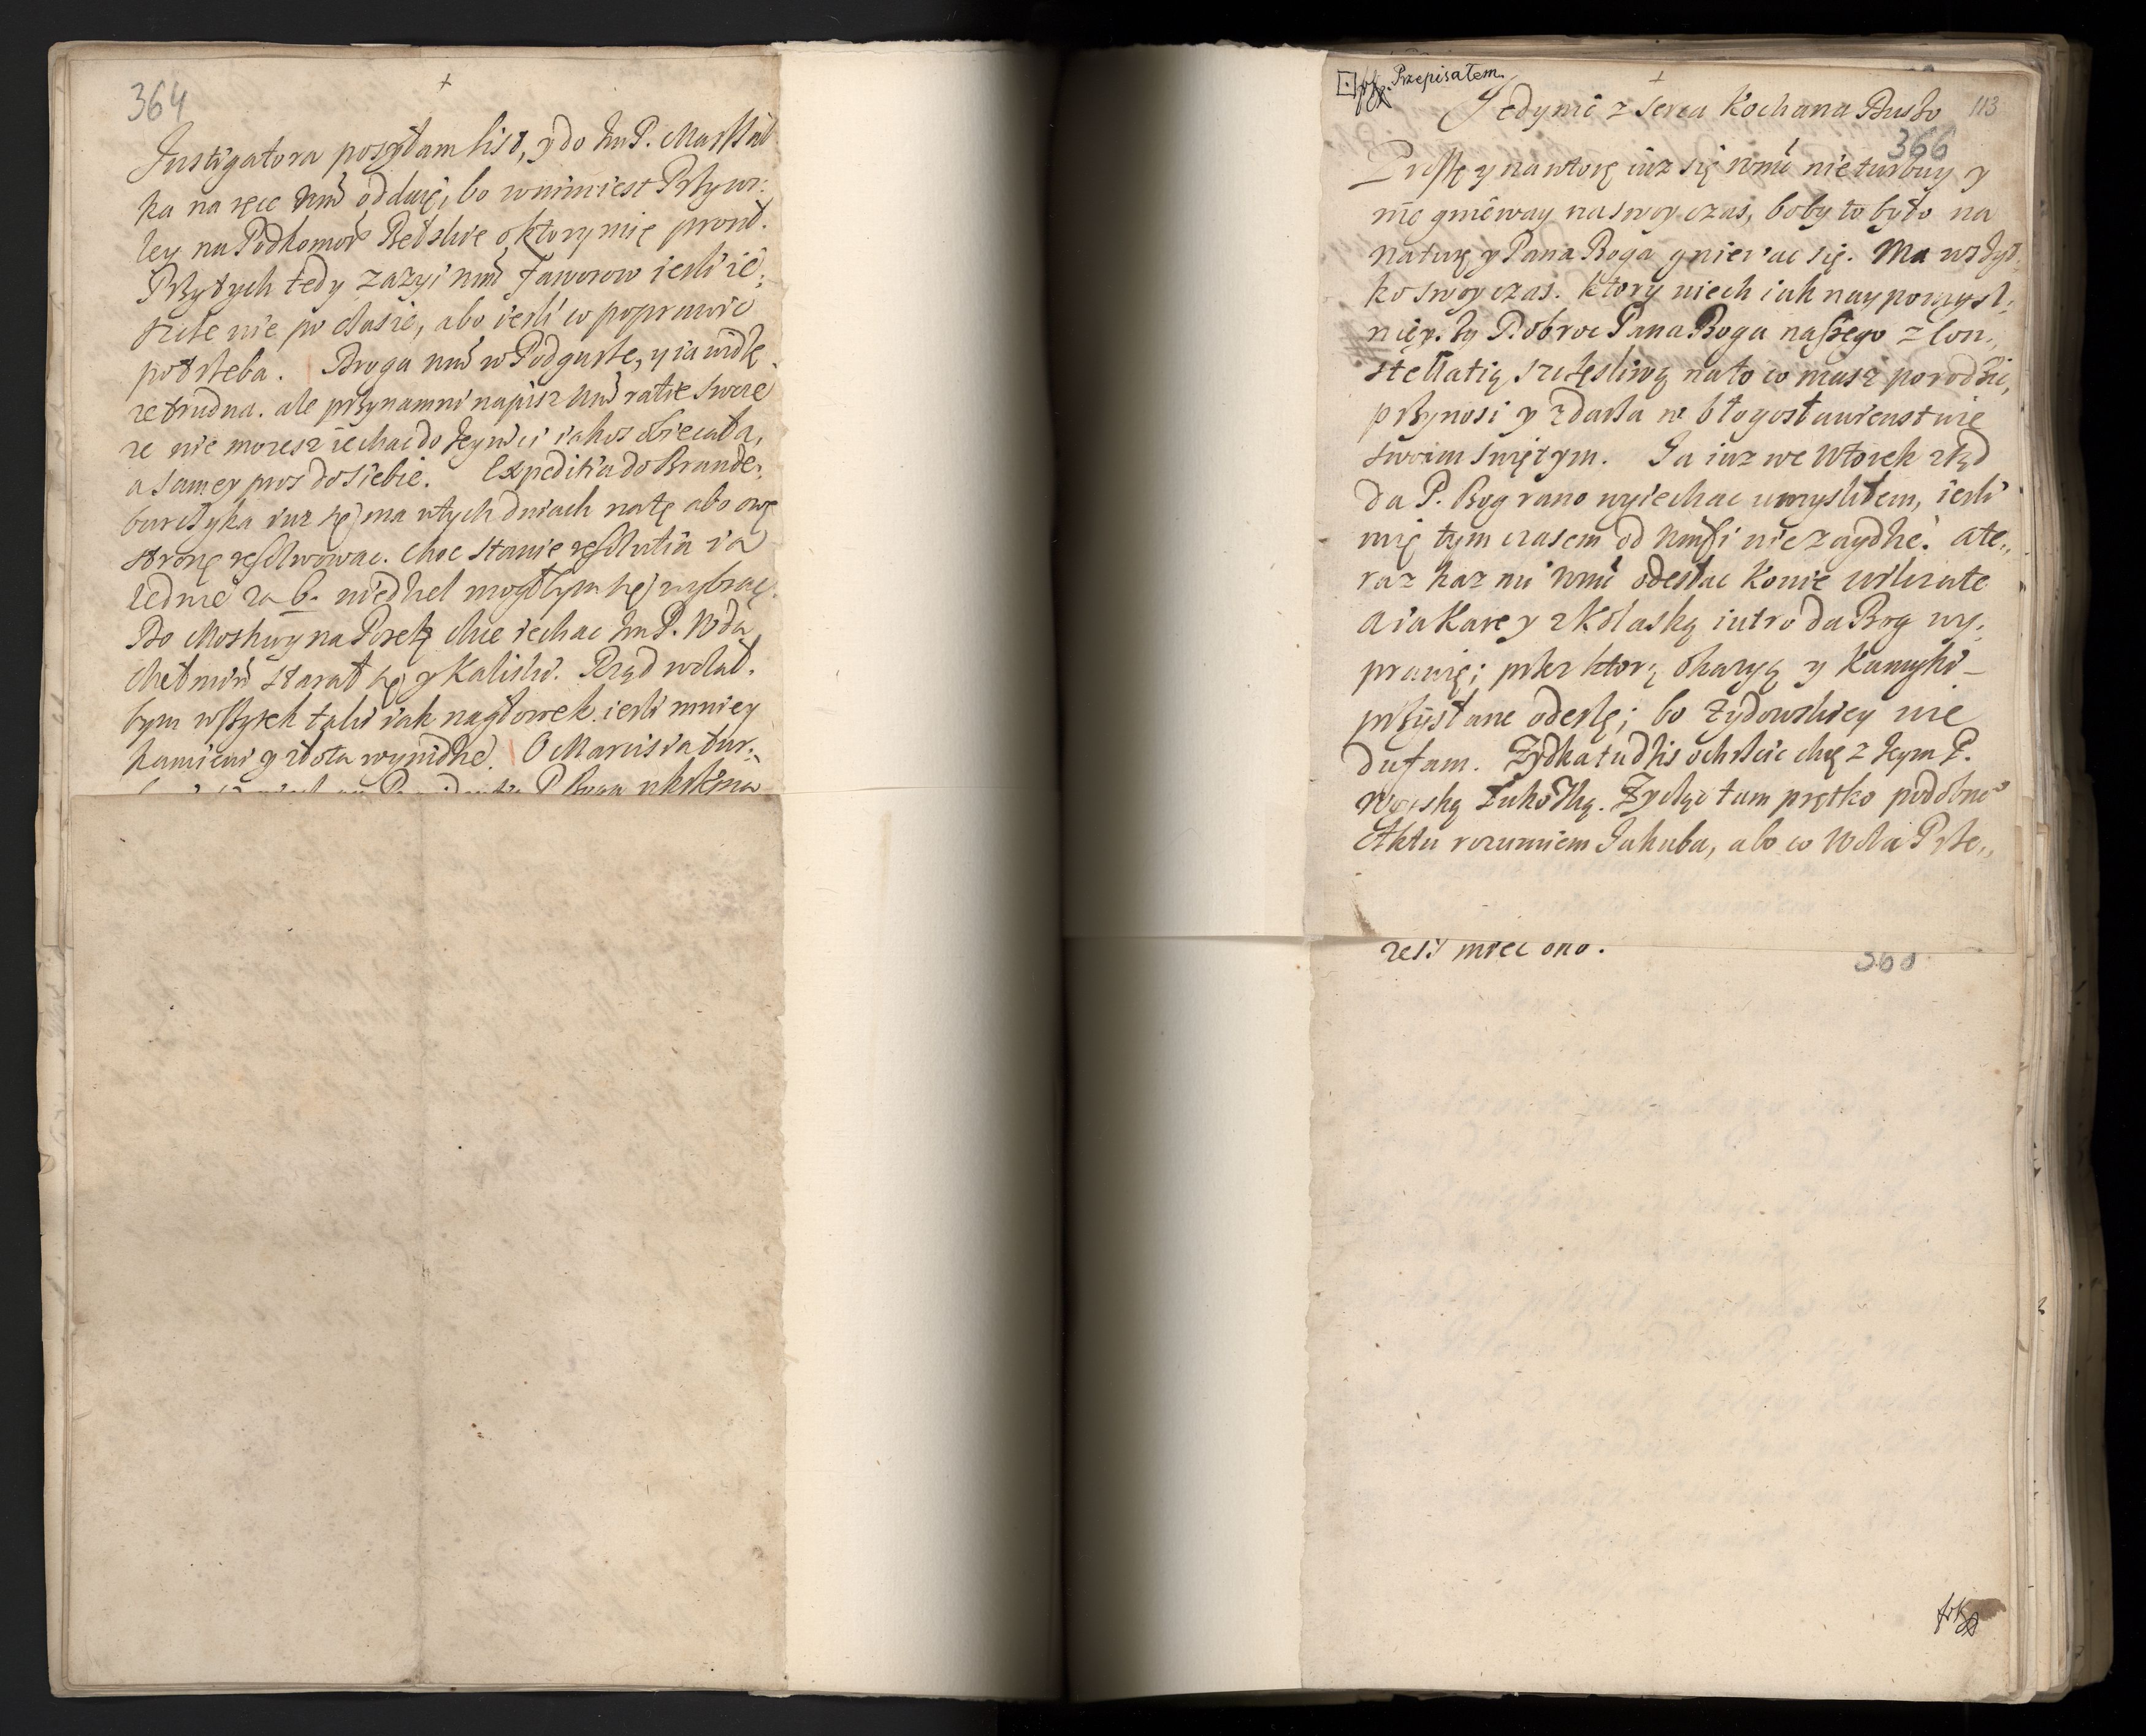 364
+
Instigatora posyłam list, y do Jm P. Marszał
ka na ręce Wm oddaię, bo wnim iest Przywi:
ley na Podkomors Bełskie o ktory mię prosił.
Przy tych tedy zazyi Wm Faworow iesli ie:
szcze nie po czasie, abo iesli co poprawic
potrzeba. Droga Wm w Podgurze, y ia widzę
ze trudna. ale przynamni napisz Wm ratie swoie
ze nie mozesz iechac do Jeymci iakos obiecała,
a samey pros do siebie. Expeditia do Brande:
burczyka iuz się ma w tych dniach na tę abo owę
stronę resolwowac. choc stanie resolutia ia
ledwie za 6. niedziel mogłbym się wybrac.
Do Moskwy na Posełs. chce iechac Jm P. Wda
Chełmin starał się y Kaliski. Rząd wolał:
bym wszytek taki iak nagłowek. iesli mniey
kamieni y złota wynidzie. O Marcisia tur:
+
113
366
Przepisałem
Jedynie z serca Kochana Duszo
Proszę y nawtorę iuz się Wmć nie turbuy y
nie gnieway na swoy czas, boby to było na
naturę y Pana Boga gniewac się. Ma wszyt:
ko swoy czas. ktory niech iak naypomysl:
niey. by Dobroc Pana Boga naszego z con:
stellatią szczęsliwą na to co masz porodzic,
przynosi y zdarza w błogosławienstwie
swoim swiętym. Ja iuz we Wtorek ztąd
da P. Bog rano wyiechac umysliłem, iesli
mię tym czasem od Wmsci nie zaydzie. a te:
raz kaz mi Wmć odesłac konie wilczate
a ia Kare y z Kolaską iutro da Bog wy:
prawię; przez ktorą okazyą y Kamyki
przysłane odeslę; bo zydowskiey nie
dufam. Zydka tu dzis ochrscic chcę z Jeym P.
Woyską Łukowską. Zyczę tam prętko podobne°
Aktu rozumiem Jakuba, abo co Wola Prze:
zesz miec ono.
368